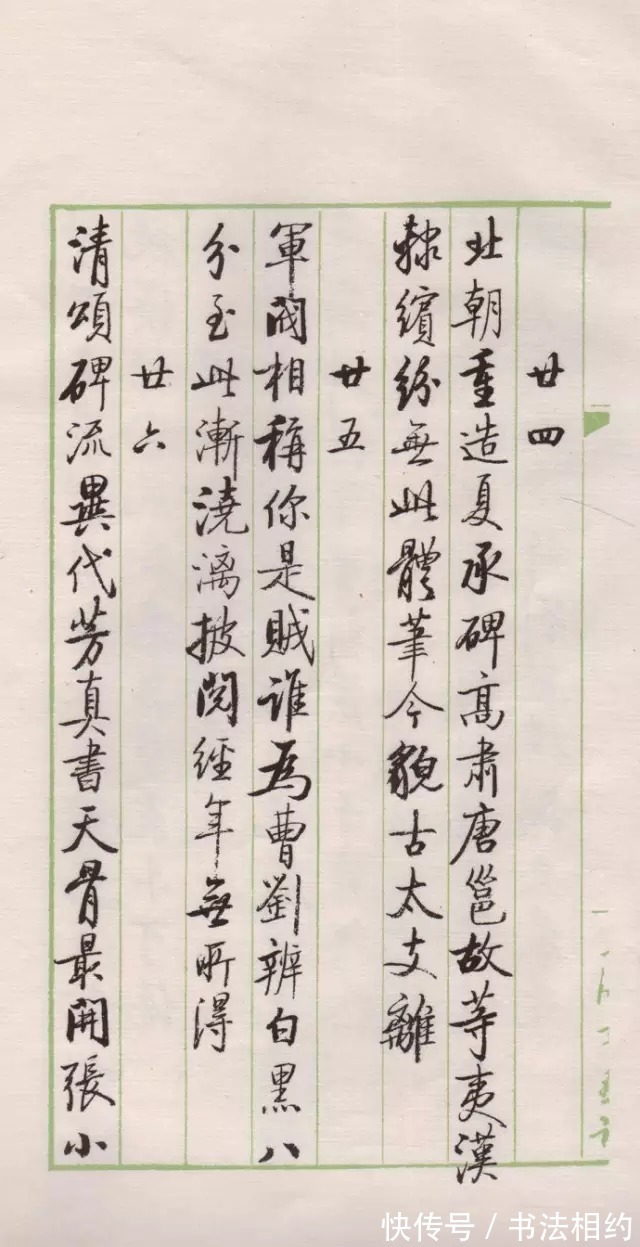 廿四
北朝重造夏承碑高肅唐邕故等夷漢
隸繽紛無此體筆今貌古太支離
廿五
軍閥相稱你是賊誰為曹劉辨白黑八
分至此漸澆漓披閱經年無所得
廿六
清頌碑流異代芳真書天骨最開張小
快传号/书法相约